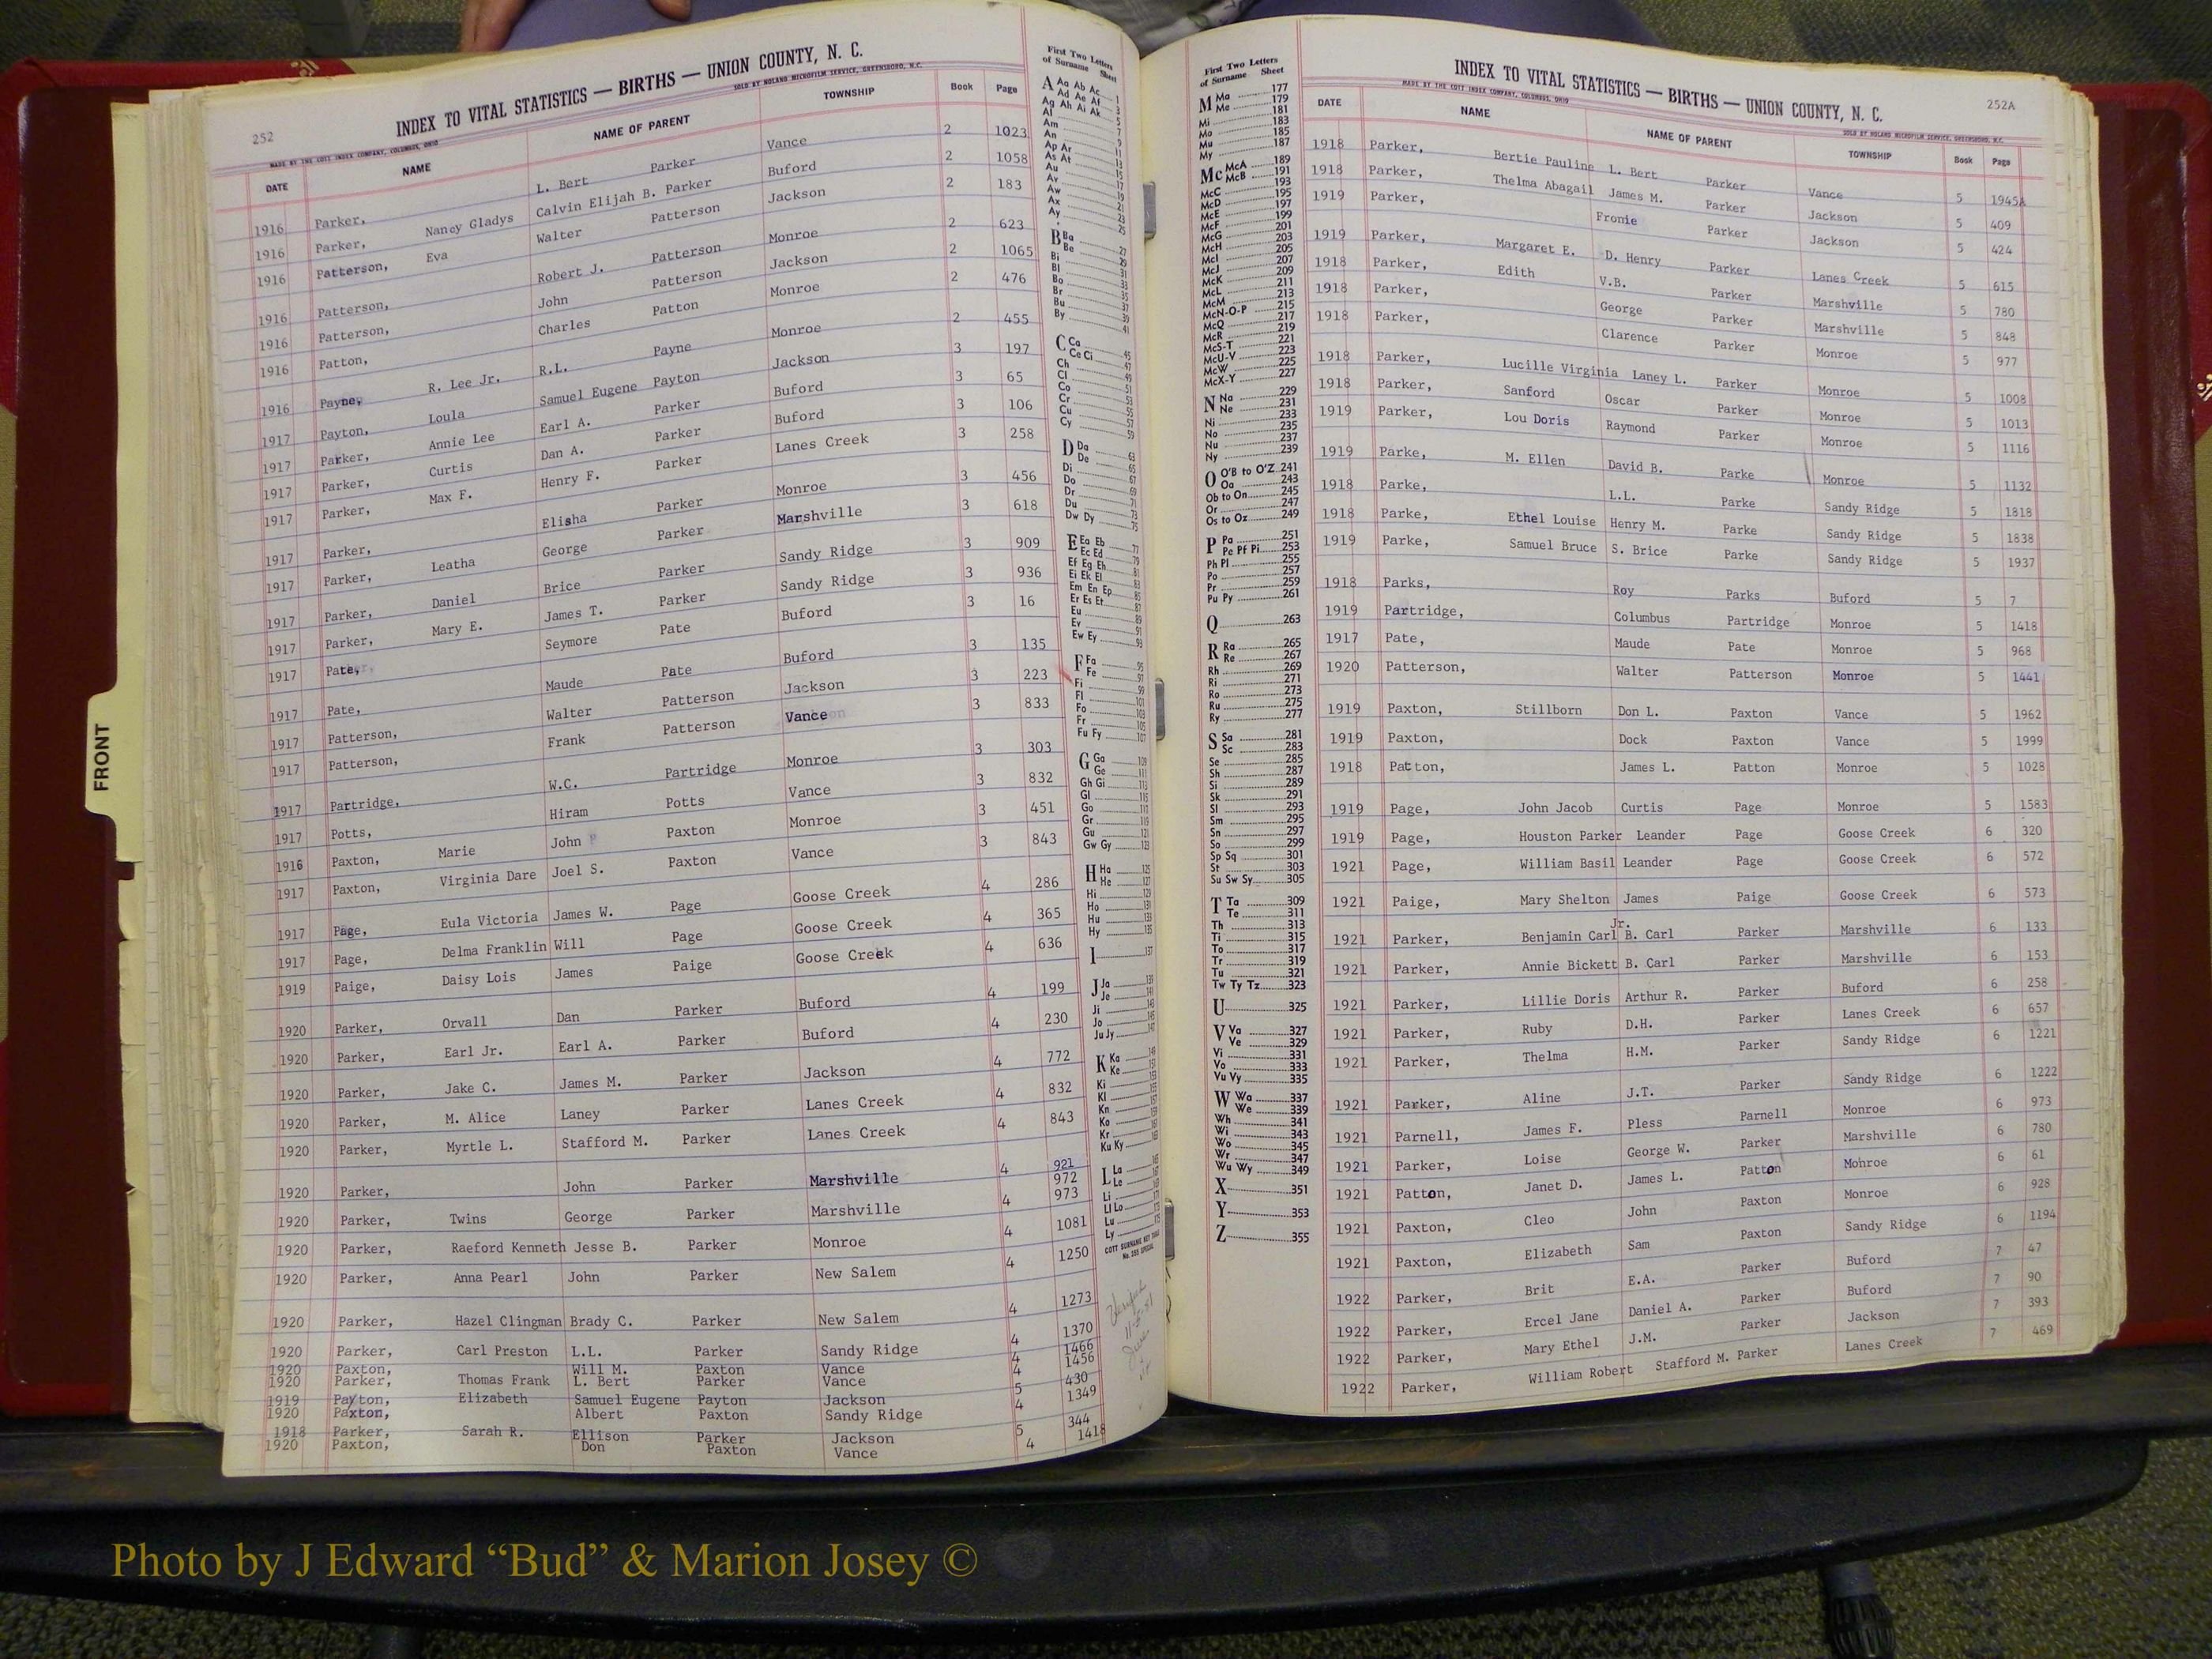 252
INDEX TO VITAL STATISTICS — BIRTHS — UNION COUNTY, N. C.
MADE BY THE COTT INDEX COMPANY, COLUMBUS, OHIO SOLD BY NOLAND MICROFILM SERVICE, GREENSBORO, N.C.
DATE NAME NAME OF PARENT TOWNSHIP Book Page
1916 Parker, L. Bert Parker Vance 2 1023
1916 Parker, Nancy Gladys Calvin Elijah B. Parker Buford 2 1058
1916 Patterson, Eva Walter Patterson Jackson 2 183
1916 Patterson, Robert J. Patterson Monroe 2 623
1916 Patterson, John Patterson Jackson 2 1065
1916 Patton, Charles Patton Monroe 2 476
1916 Payne, R. Lee Jr. R.L. Payne Monroe 2 455
1917 Payton, Loula Samuel Eugene Payton Jackson 3 197
1917 Parker, Annie Lee Earl A. Parker Buford 3 65
1917 Parker, Curtis Dan A. Parker Buford 3 106
1917 Parker, Max F. Henry F. Parker Lanes Creek 3 258
1917 Parker, Elisha Parker Monroe 3 456
1917 Parker, Leatha George Parker Marshville 3 618
1917 Parker, Daniel Brice Parker Sandy Ridge 3 909
1917 Parker, Mary E. James T. Parker Sandy Ridge 3 936
1917 Pate, Seymore Pate Buford 3 16
1917 Pate, Maude Pate Buford 3 135
1917 Patterson, Walter Patterson Jackson 3 223
1917 Patterson, Frank Patterson Vance 3 833
1917 Partridge, W.C. Partridge Monroe 3 303
1917 Potts, Hiram Potts Vance 3 832
1916 Paxton, Marie John Paxton Monroe 3 451
1917 Paxton, Virginia Dare Joel S. Paxton Vance 3 843
1917 Page, Eula Victoria James W. Page Goose Creek 4 286
1917 Page, Delma Franklin Will Page Goose Creek 4 365
1919 Paige, Daisy Lois James Paige Goose Creek 4 636
1920 Parker, Orvall Dan Parker Buford 4 199
1920 Parker, Earl Jr. Earl A. Parker Buford 4 230
1920 Parker, Jake C. James M. Parker Jackson 4 772
1920 Parker, M. Alice Laney Parker Lanes Creek 4 832
1920 Parker, Myrtle L. Stafford M. Parker Lanes Creek 4 843
1920 Parker, John Parker Marshville 4 921
972
1920 Parker, Twins George Parker Marshville 4 973
1920 Parker, Raeford Kenneth Jesse B. Parker Monroe 4 1081
1920 Parker, Anna Pearl John Parker New Salem 4 1250
1920 Parker, Hazel Clingman Brady C. Parker New Salem 4 1273
1920 Parker, Carl Preston L.L. Parker Sandy Ridge 4 1370
1920 Paxton, Will M. Paxton Vance 4 1466
1920 Parker, Thomas Frank L. Bert Parker Vance 4 1456
1919 Payton, Elizabeth Samuel Eugene Payton Jackson 5 430
1920 Paxton, Albert Paxton Sandy Ridge 4 1349
1918 Parker, Sarah R. Ellison Parker Jackson 5 344
1920 Paxton, Don Paxton Vance 4 1418
First Two Letters
of Surname Sheet
A Aa Ab Ac 1
Ad Ae Af 3
Ag Ah Ai Ak 5
Al 7
Am 9
An 11
Ap Ar 13
As At 15
Au 17
Av 19
Aw 21
Ax 23
Ay 25
B Ba 27
Be 29
Bi 31
Bl 33
Bo 35
Br 37
Bu 39
By 41
C Ca 45
Ce Ci 47
Ch 49
Cl 51
Co 53
Cr 55
Cu 57
Cy 59
D Da 63
De 65
Di 67
Do 69
Dr 71
Du 73
Dw Dy 75
E Ea Eb 77
Ec Ed 79
Ef Eg Eh 81
Ei Ek El 83
Em En Ep 85
Er Es Et 87
Eu 89
Ev 91
Ew Ey 93
F Fa 95
Fe 97
Fi 99
Fl 101
Fo 103
Fr 105
Fu Fy 107
G Ga 109
Ge 111
Gh Gi 113
Gl 115
Go 117
Gr 119
Gu 121
Gw Gy 123
H Ha 125
He 127
Hi 129
Ho 131
Hu 133
Hy 135
I 137
J Ja 139
Je 141
Ji 143
Jo 145
Ju Jy 147
K Ka 149
Ke 151
Ki 153
Kl 155
Kn 157
Ko 159
Kr 161
Ku Ky 163
L La 165
Le 167
Li
Ll Lo
Lu
Ly
COTT SURNAME KEY TABLE
First Two Letters
of Surname Sheet
M Ma 177
Me 179
Mi 181
Mo 183
Mu 185
My 187
Mc McA 189
McB 191
McC 193
McD 195
McE 197
McF 199
McG 201
McH 203
McI 205
McJ 207
McK 209
McL 211
McM 213
McN-O-P 215
McQ 217
McR 219
McS-T 221
McU-V 223
McW 225
McX-Y 227
N Na 229
Ne 231
Ni 233
No 235
Nu 237
Ny 239
O O'B to O'Z 241
Oa 243
Ob to On 245
Or 247
Os to Oz 249
P Pa 251
Pe Pf Pi 253
Ph Pl 255
Po 257
Pr 259
Pu Py 261
Q 263
R Ra 265
Re 267
Rh 269
Ri 271
Ro 273
Ru 275
Ry 277
S Sa 281
Sc 283
Se 285
Sh 287
Si 289
Sk 291
Sl 293
Sm 295
Sn 297
So 299
Sp Sq 301
St 303
Su Sw Sy 305
T Ta 309
Te 311
Th 313
Ti 315
To 317
Tr 319
Tu 321
Tw Ty Tz 323
U 325
V Va 327
Ve 329
Vi 331
Vo 333
Vu Vy 335
W Wa 337
We 339
Wh 341
Wi 343
Wo 345
Wr 347
Wu Wy 349
X 351
Y 353
Z 355
252A
INDEX TO VITAL STATISTICS — BIRTHS — UNION COUNTY, N. C.
MADE BY THE COTT INDEX COMPANY, COLUMBUS, OHIO SOLD BY NOLAND MICROFILM SERVICE, GREENSBORO, N.C.
DATE NAME NAME OF PARENT TOWNSHIP Book Page
1918 Parker, Bertie Pauline L. Bert Parker Vance 5 1945A
1918 Parker, Thelma Abagail James M. Parker Jackson 5 409
1919 Parker, Fronie Parker Jackson 5 424
1919 Parker, Margaret E. D. Henry Parker Lanes Creek 5 615
1918 Parker, Edith V.B. Parker Marshville 5 780
1918 Parker, George Parker Marshville 5 848
1918 Parker, Clarence Parker Monroe 5 977
1918 Parker, Lucille Virginia Laney L. Parker Monroe 5 1008
1918 Parker, Sanford Oscar Parker Monroe 5 1013
1919 Parker, Lou Doris Raymond Parker Monroe 5 1116
1919 Parke, M. Ellen David B. Parke Monroe 5 1132
1918 Parke, L.L. Parke Sandy Ridge 5 1818
1918 Parke, Ethel Louise Henry M. Parke Sandy Ridge 5 1838
1919 Parke, Samuel Bruce S. Brice Parke Sandy Ridge 5 1937
1918 Parks, Roy Parks Buford 5 7
1919 Partridge, Columbus Partridge Monroe 5 1418
1917 Pate, Maude Pate Monroe 5 968
1920 Patterson, Walter Patterson Monroe 5 1441
1919 Paxton, Stillborn Don L. Paxton Vance 5 1962
1919 Paxton, Dock Paxton Vance 5 1999
1918 Patton, James L. Patton Monroe 5 1028
1919 Page, John Jacob Curtis Page Monroe 5 1583
1919 Page, Houston Parker Leander Page Goose Creek 6 320
1921 Page, William Basil Leander Page Goose Creek 6 572
1921 Paige, Mary Shelton James Paige Goose Creek 6 573
Jr.
1921 Parker, Benjamin Carl B. Carl Parker Marshville 6 133
1921 Parker, Annie Bickett B. Carl Parker Marshville 6 153
1921 Parker, Lillie Doris Arthur R. Parker Buford 6 258
1921 Parker, Ruby D.H. Parker Lanes Creek 6 657
1921 Parker, Thelma H.M. Parker Sandy Ridge 6 1221
1921 Parker, Aline J.T. Parker Sandy Ridge 6 1222
1921 Parnell, James F. Pless Parnell Monroe 6 973
1921 Parker, Loise George W. Parker Marshville 6 780
1921 Patton, Janet D. James L. Patton Monroe 6 61
1921 Paxton, Cleo John Paxton Monroe 6 928
1921 Paxton, Elizabeth Sam Paxton Sandy Ridge 6 1194
1922 Parker, Brit E.A. Parker Buford 7 47
1922 Parker, Ercel Jane Daniel A. Parker Buford 7 90
1922 Parker, Mary Ethel J.M. Parker Jackson 7 393
1922 Parker, William Robert Stafford M. Parker Lanes Creek 7 469
FRONT
Photo by J Edward “Bud” & Marion Josey ©